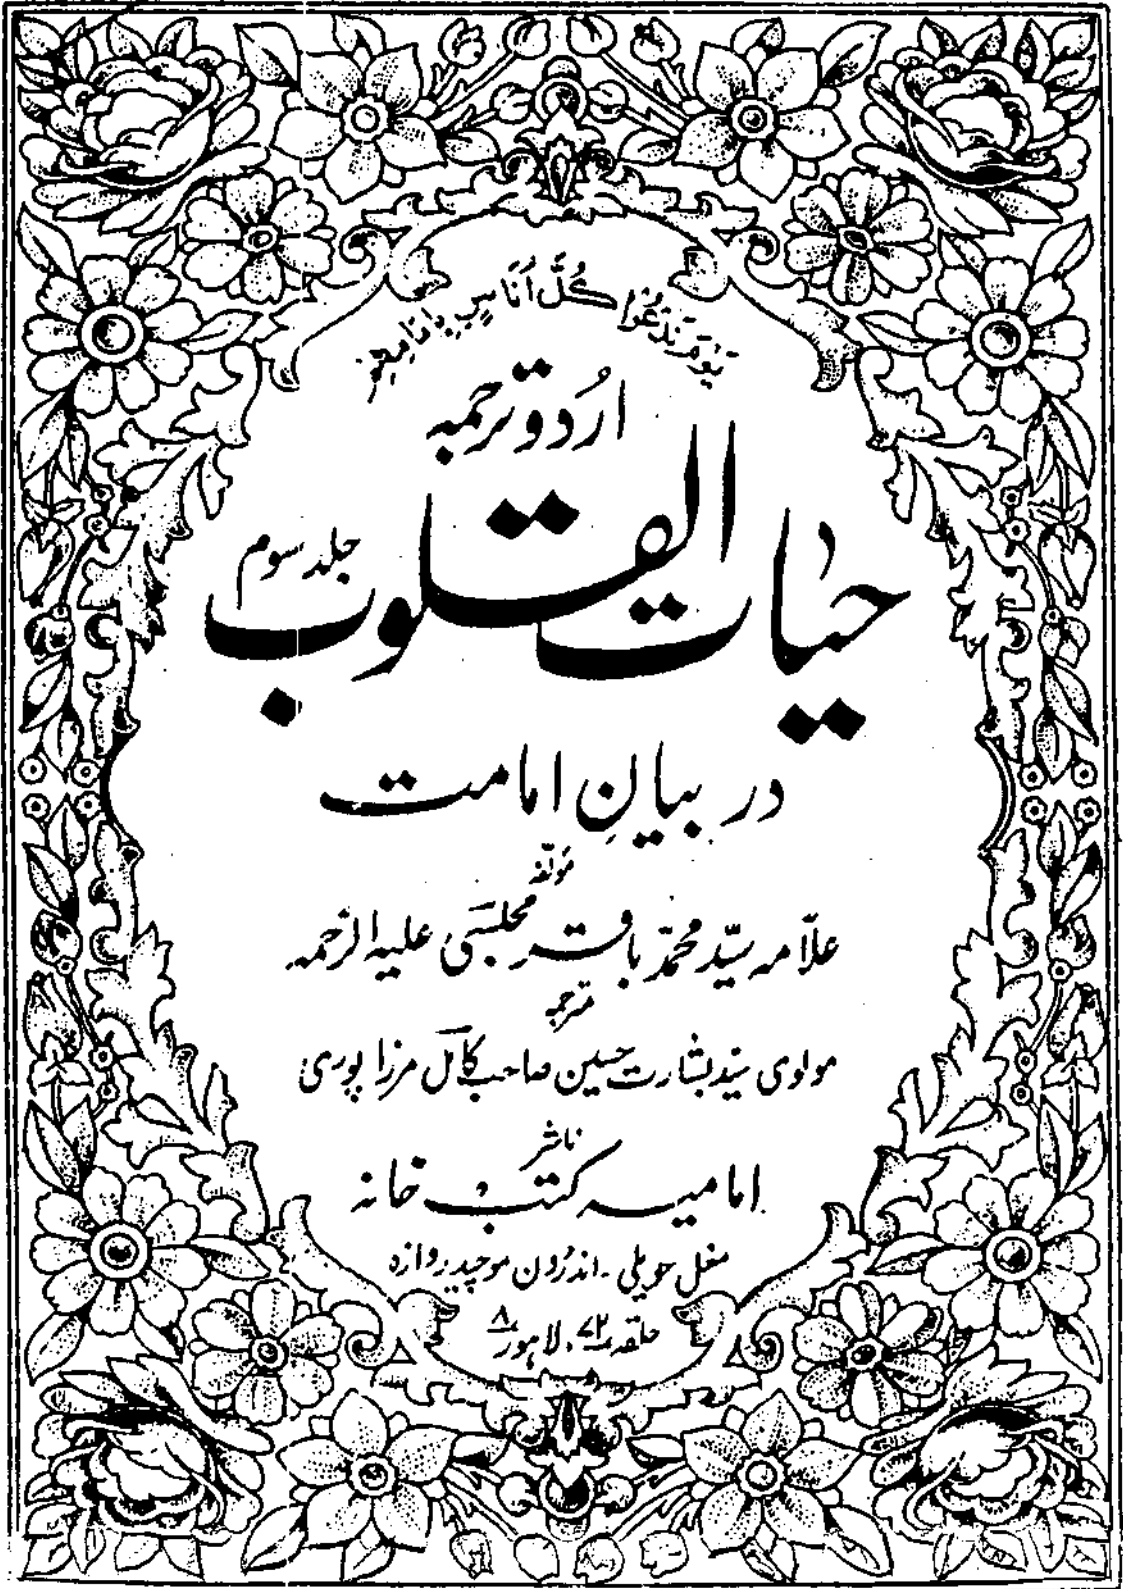 يَوْمَ نَدْعُوْا كُلَّ اُنَاسٍۭ بِاِمَامِهِمْ
اُردو ترجمہ
حیات القلوب
جلد سوم
در بیانِ امامت
مؤلفہ
علّامہ سیّد محمّد باقر مجلسی علیہ الرحمہ
مترجمہ
مولوی سیّد بشارت حسین صاحب کامل مرزا پوری
ناشر
امامیہ کتب خانہ
مغل حویلی ۔ اندرُون موچیدروازہ
حلقہ ۷۲، لاہور ۸